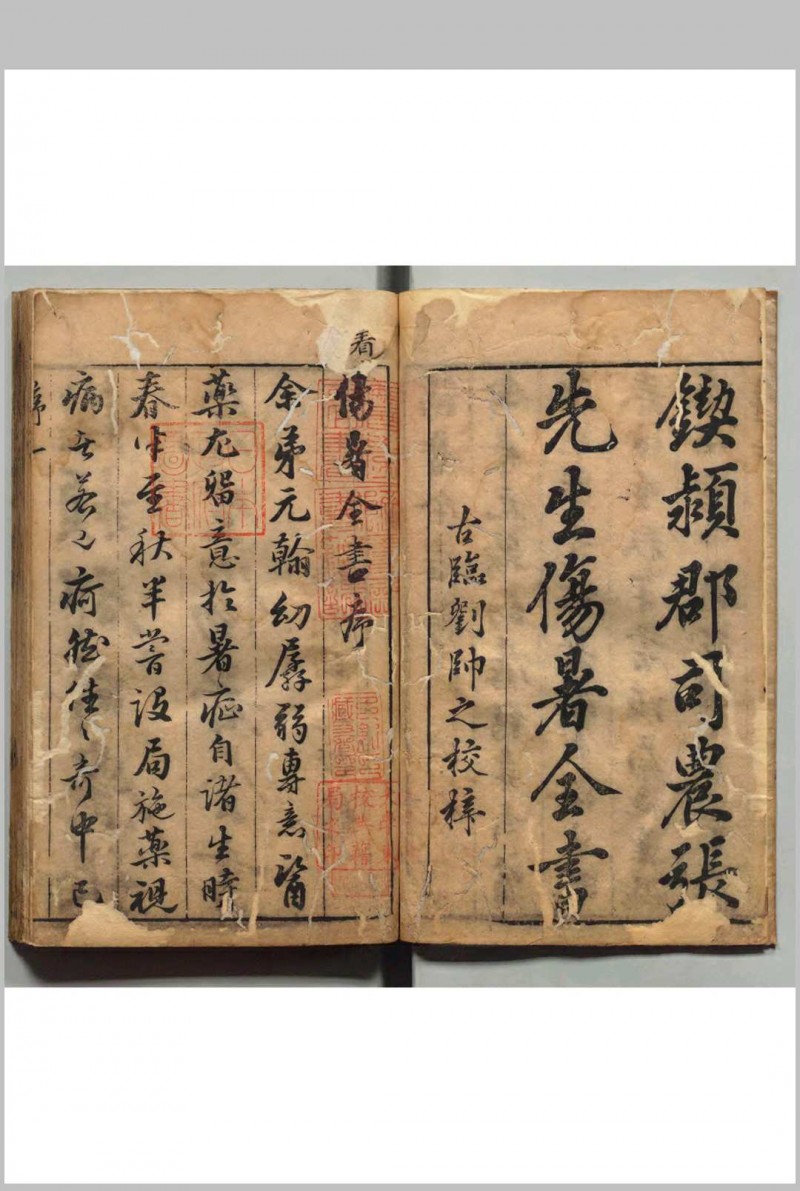 鍥潁郡司農張
先生傷暑全書
古臨劉帥之校梓
看
傷暑全書序
余弟元翰幼孱弱專意醫
藥尤留意於暑症自諸生時
春中至秋半嘗設局施藥視
病者若已疴然往〻奇中已
序 一